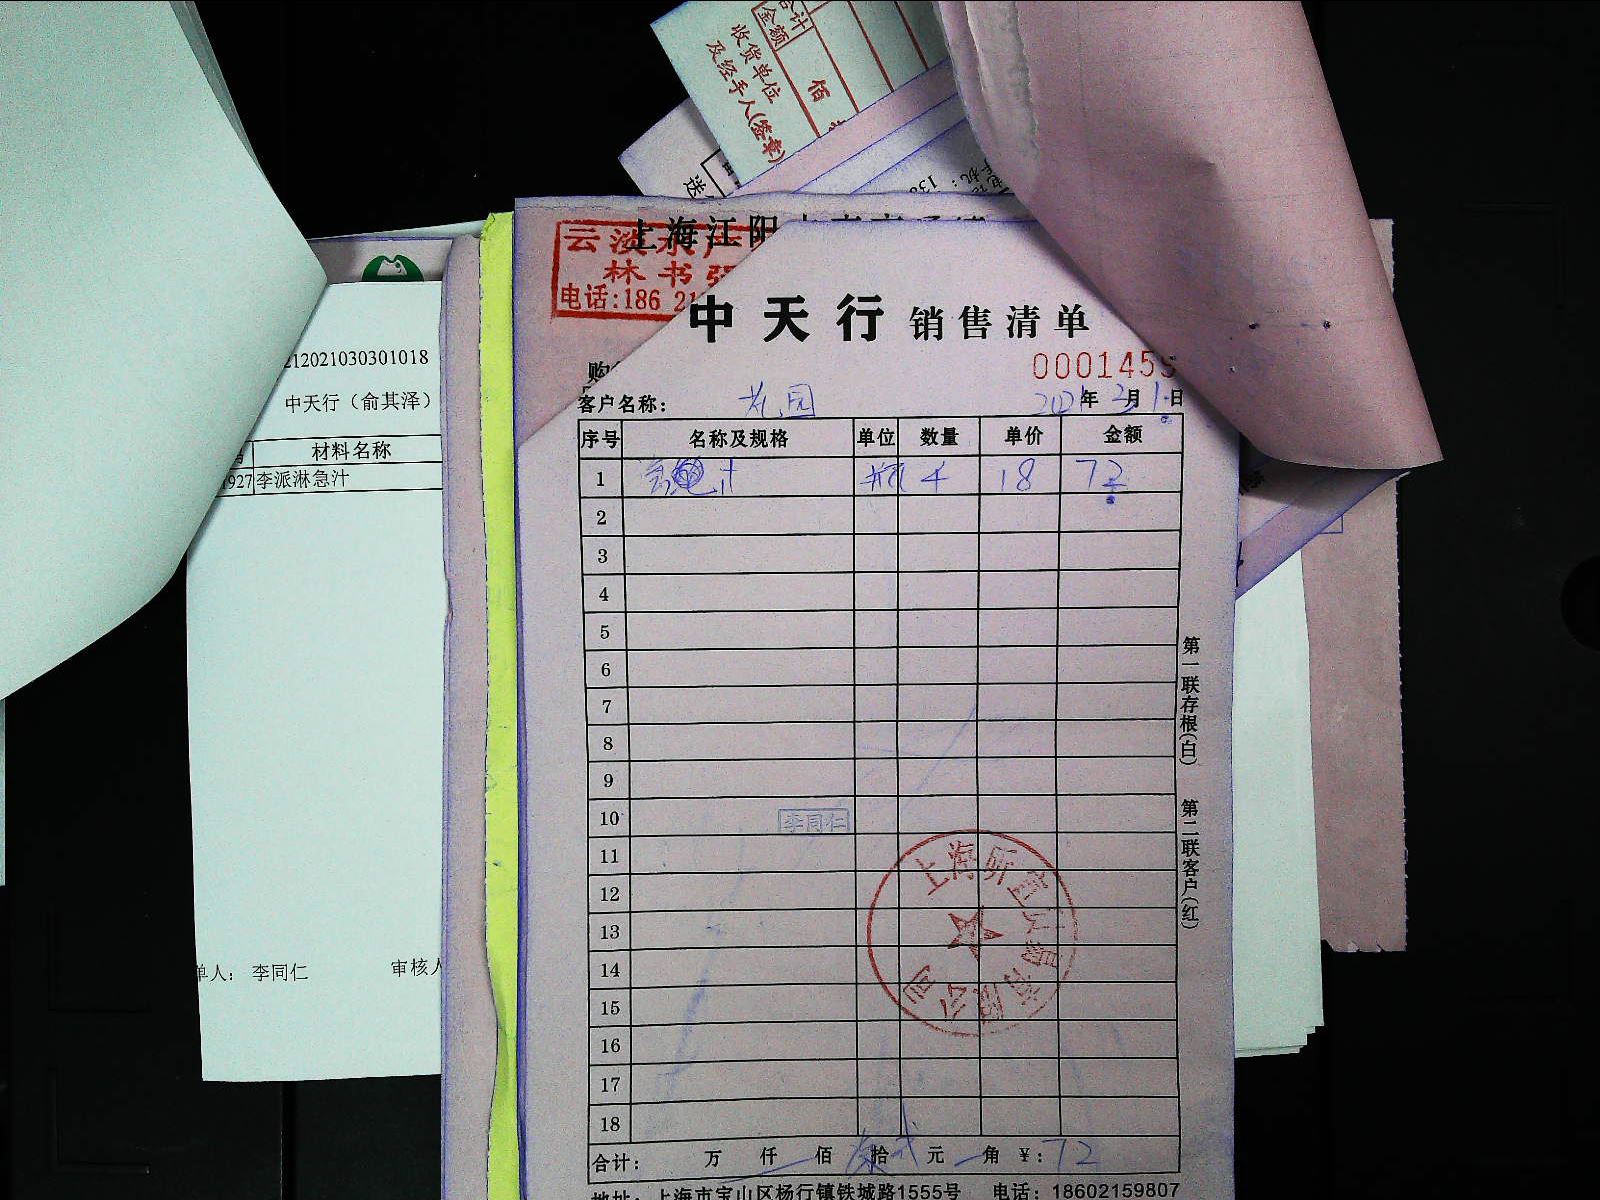 合计
金额
佰
收货单位
及经手人(签章)
送
上海江阳
云淡水产
林书强
电话:186 21
中天行 销售清单
购
0001459
212021030301018
客户名称: 花园 2021年3月1日
中天行（俞其泽）
序号 名称及规格 单位 数量 单价 金额
材料名称
1 汁 瓶 4 18 72
927 李派淋急汁
2
3
4
5
6
7
8
9
10 李同仁
11
12
13
14
15
16
17
18
第一联存根(白) 第二联客户(红)
单人: 李同仁 审核人
合计: 万 仟 佰 柒拾贰元 角 ¥: 72
地址: 上海市宝山区杨行镇铁城路1555号 电话: 18602159807